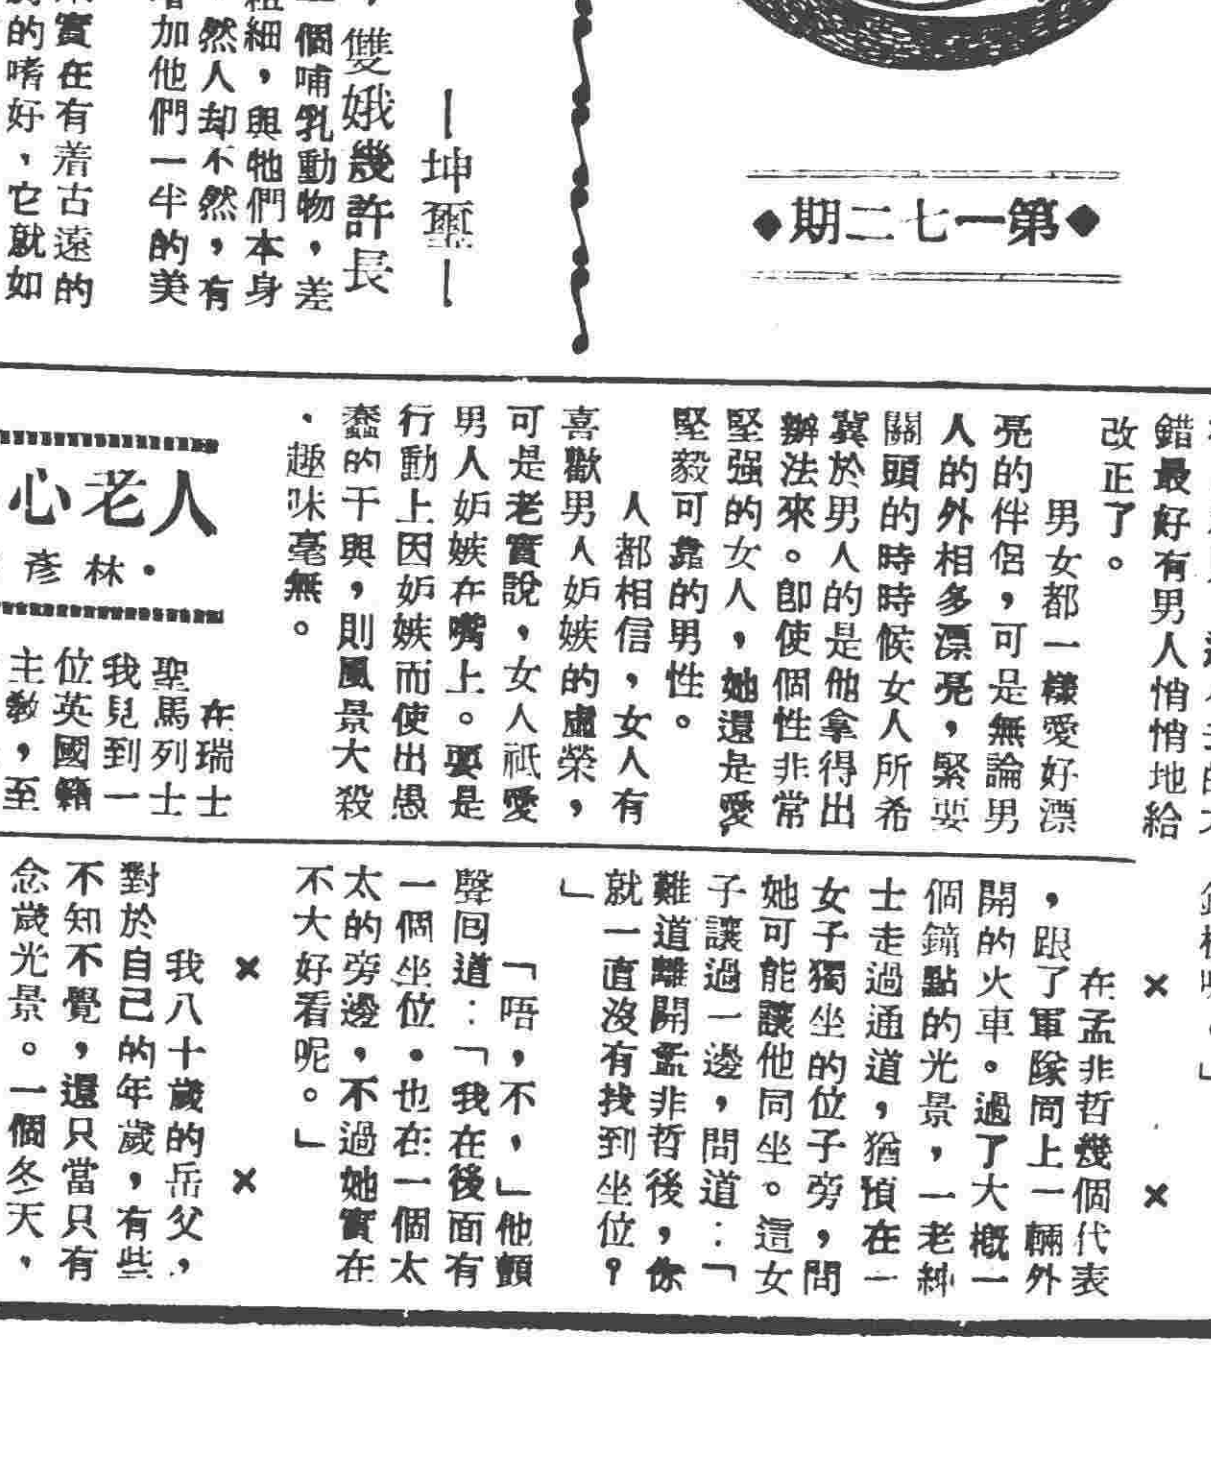 ◆第一七二期◆
—坤璽—
，雙娥幾許長
一個哺乳動物，差
粗細，與牠們本身
，然人却不然，有
增加他們一半的美
實在有着古遠的
的嗜好，它就如
錯最好有男人悄悄地給
改正了。
男女都一樣愛好漂
亮的伴侶，可是無論男
人的外相多漂亮，緊要
關頭的時時候女人所希
冀於男人的是他拿得出
辦法來。卽使個性非常
堅强的女人，她還是愛
堅毅可靠的男性。
人都相信，女人有
喜歡男人妒嫉的虛榮，
可是老實說，女人祇愛
男人妒嫉在嘴上。要是
行動上因妒嫉而使出愚
蠢的干與，則風景大殺
．趣味毫無。
人老心
·林彥
在瑞士
聖馬列士
我兒到一
位英國籍
主敎，至
× ×
在孟非哲幾個代表
，跟了軍隊同上一輛外
開的火車。過了大槪一
個鐘點的光景，一老紳
士走過通道，猶預在一
女子獨坐的位子旁，問
她可能讓他同坐。這女
子讓過一邊，問道：「
難道離開孟非哲後，你
就一直沒有找到坐位？
」
「唔，不，」他顫
聲囘道：「我在後面有
一個坐位．也在一個太
太的旁邊，不過她實在
不大好看呢。」
× ×
我八十歲的岳父，
對於自己的年歲，有些
不知不覺，還只當只有
念歲光景。一個冬天，